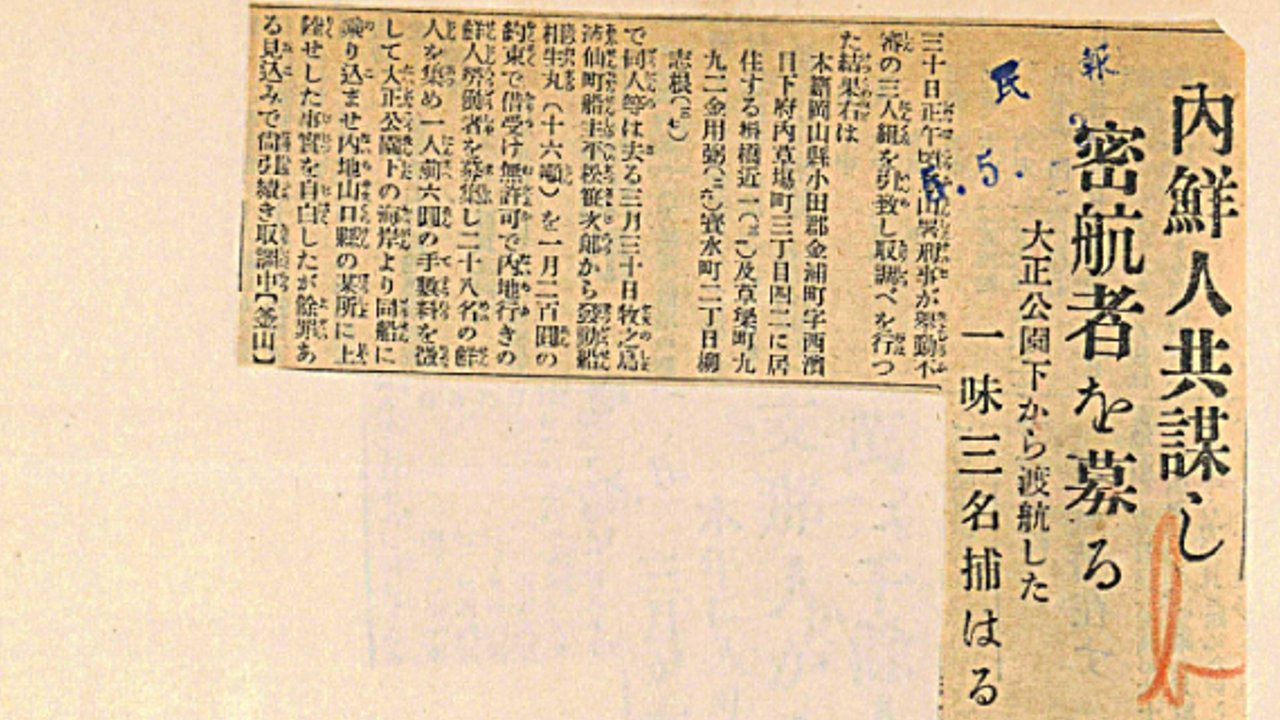 内鮮人共謀し
密航者を募る
大正公園下から渡航した
一味三名捕はる
報
民
5.
三十日正午頃山署刑事が擧動不
審の三人組を引致し取調べを行つ
た結果右は
本籍岡山縣小田郡金浦町字西濱
目下府内草場町三丁目四二に居
住する橋近一及草梁町九
九二金用弼寳水町二丁目柳
志根
で同人等は去る三月三十日牧之島
仙町船主平松笹次郎から發動船
相生丸(十六噸)を一月二百圓の
約束で借受け無許可で内地行きの
鮮人勞働者を募集し二十八名の鮮
人を集め一人前六圓の手數料を徴
して大正公園下の海岸より同船に
乘り込ませ内地山口縣の某所に上
陸せした事實を自白したが餘罪あ
る見込みで尚引續き取調中【釜山】